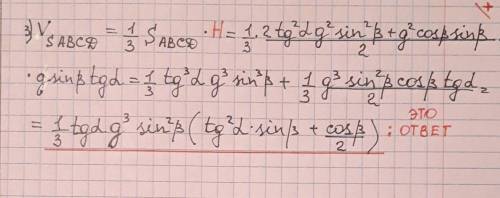 +
3) V_SABCD = 1/3 S_ABCD · H = 1/3 · (2 tg²α g² sin²β + g² cosβ sinβ)/2 ·
· g sinβ tgα = 1/3 tg³α g³ sin³β + 1/3 (g³ sin²β cosβ tgα)/2 =
= 1/3 tgα g³ sin²β (tg²α · sinβ + cosβ/2) : ЭТО ОТВЕТ